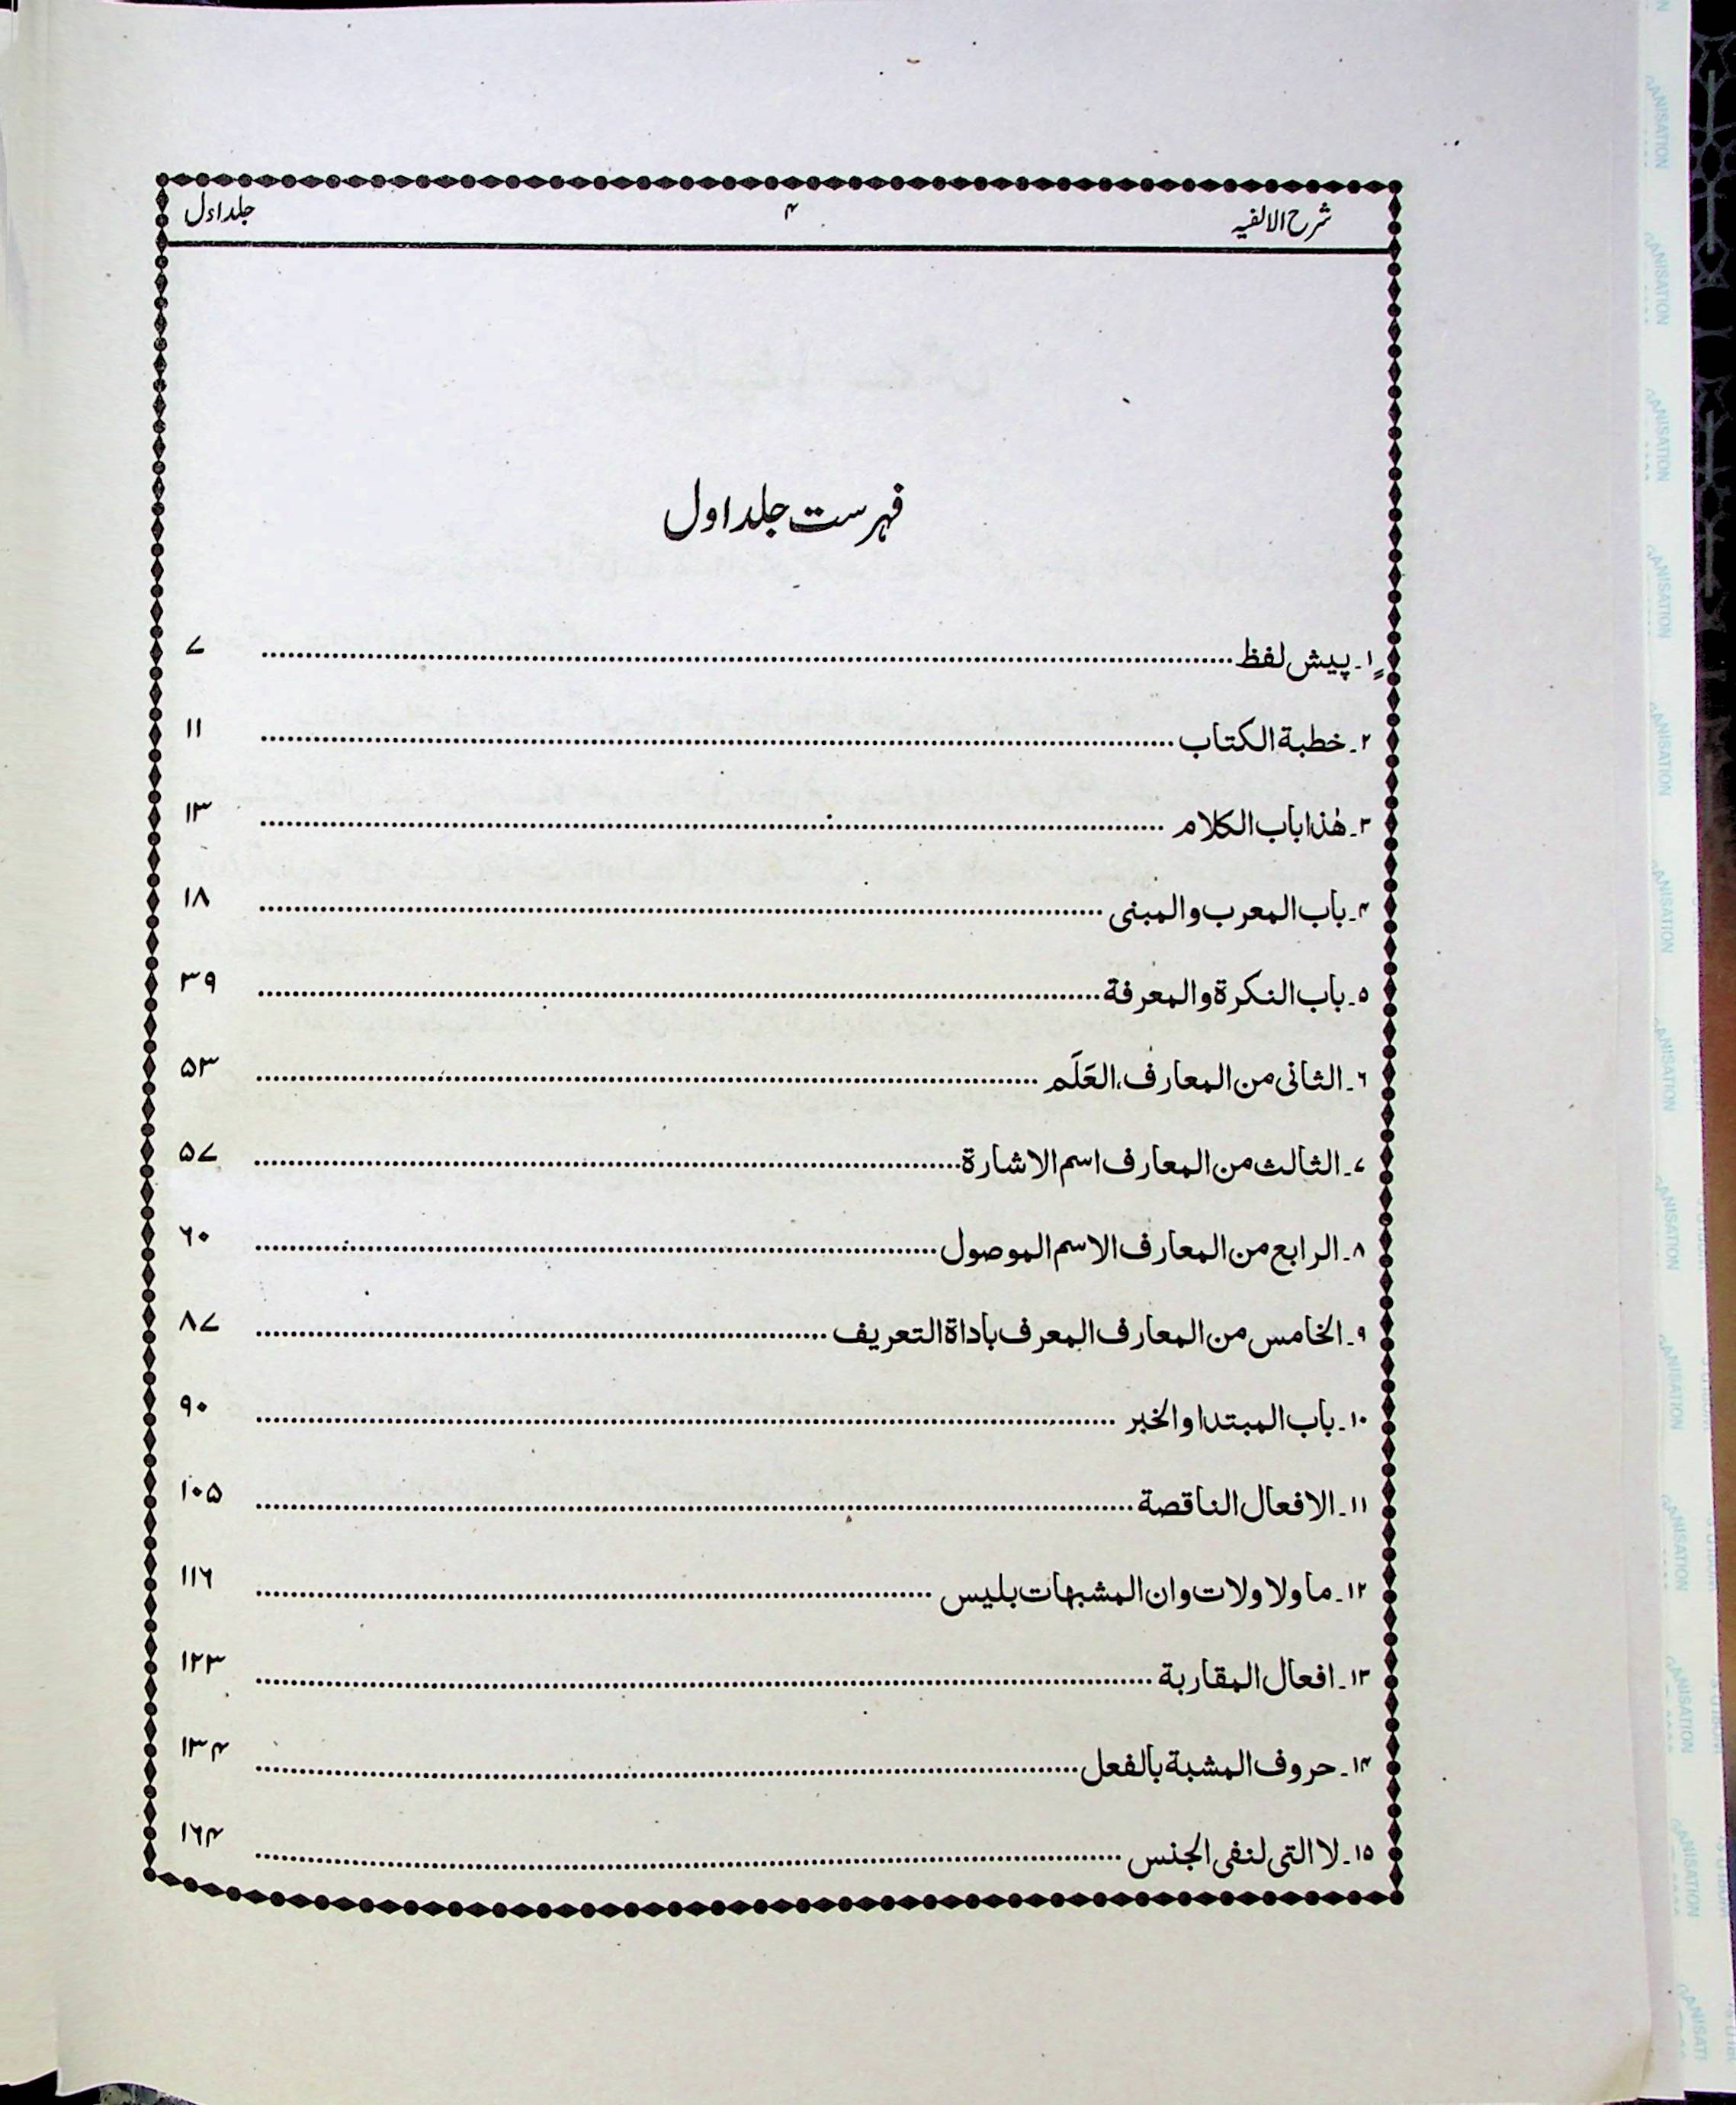 شرح الالفیہ ۴ جلد اول
فہرست جلد اول
۱۔ پیش لفظ ........ ۷
۲۔ خطبة الكتاب ........ ۱۱
۳۔ هٰذا باب الكلام ........ ۱۳
۴۔ باب المعرب والمبنی ........ ۱۸
۵۔ باب النكرة والمعرفة ........ ۳۹
۶۔ الثانی من المعارف، العَلَم ........ ۵۳
۷۔ الثالث من المعارف اسم الاشارة ........ ۵۷
۸۔ الرابع من المعارف الاسم الموصول ........ ۶۰
۹۔ الخامس من المعارف المعرف باداة التعريف ........ ۸۷
۱۰۔ باب المبتدا والخبر ........ ۹۰
۱۱۔ الافعال الناقصة ........ ۱۰۵
۱۲۔ ما ولا ولات وان المشبهات بليس ........ ۱۱۶
۱۳۔ افعال المقاربة ........ ۱۲۳
۱۴۔ حروف المشبة بالفعل ........ ۱۳۴
۱۵۔ لا التی لنفی الجنس ........ ۱۶۴